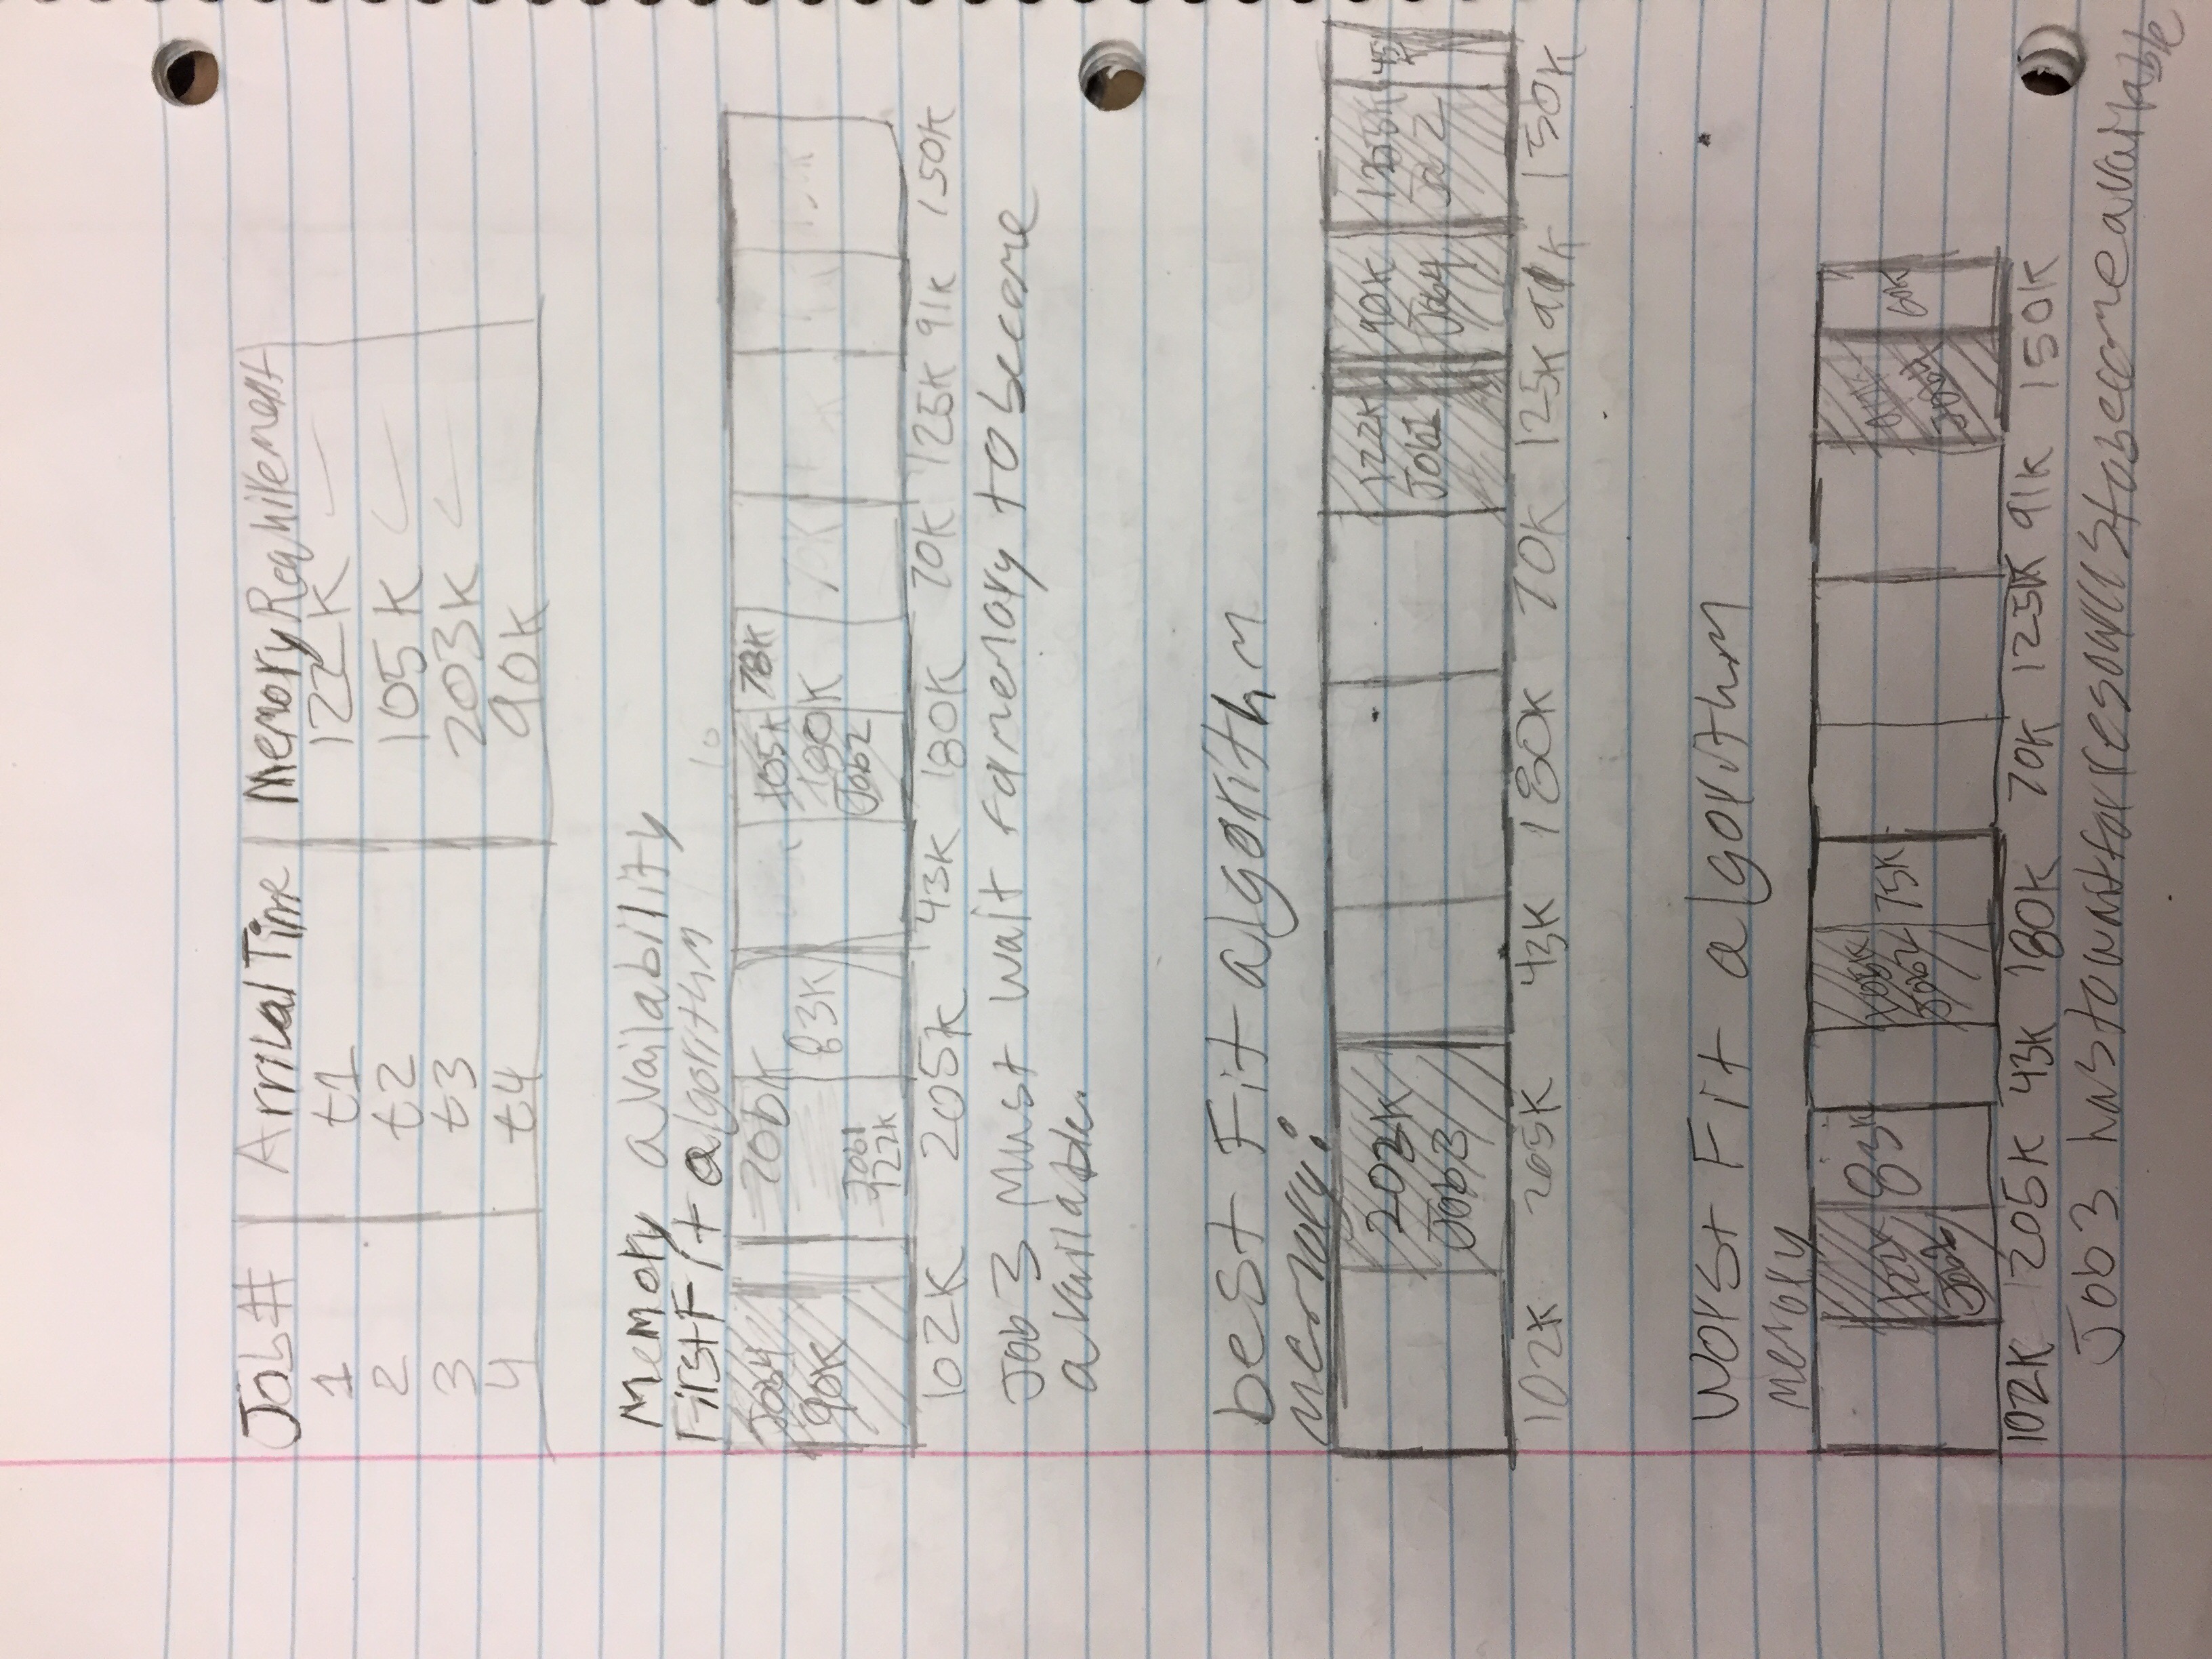 Job# Arrival Time Memory Requirement
1 t1 122K
2 t2 105K
3 t3 203K
4 t4 90K
Memory availability
First Fit algorithm
Job4 105K 78K
90K 83K 180K
Job1 Job2
122K
102K 205K 43K 180K 70K 125K 91K 150K
Job 3 Must wait for memory to become
available.
best Fit algorithm
memory:
122K 90K 45
Job3 Job1 Job4 Job2
102K 205K 43K 180K 70K 125K 91K 150K
Worst Fit algorithm
memory
122K 83K 105K 75K 90K 60K
Job2 Job4
102K 205K 43K 180K 70K 125K 91K 150K
Job 3 has to wait for resources to become available